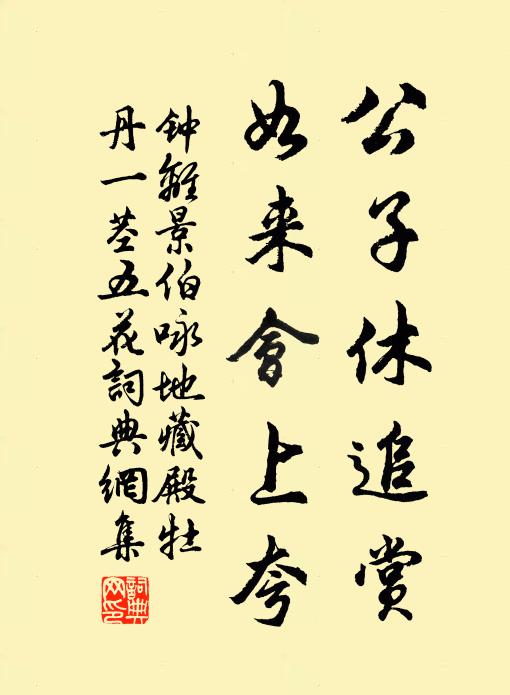 公子休追赏
如来會上夸
钟離景伯咏地藏殿牡
丹一茎五花詞典網集
詞典網印